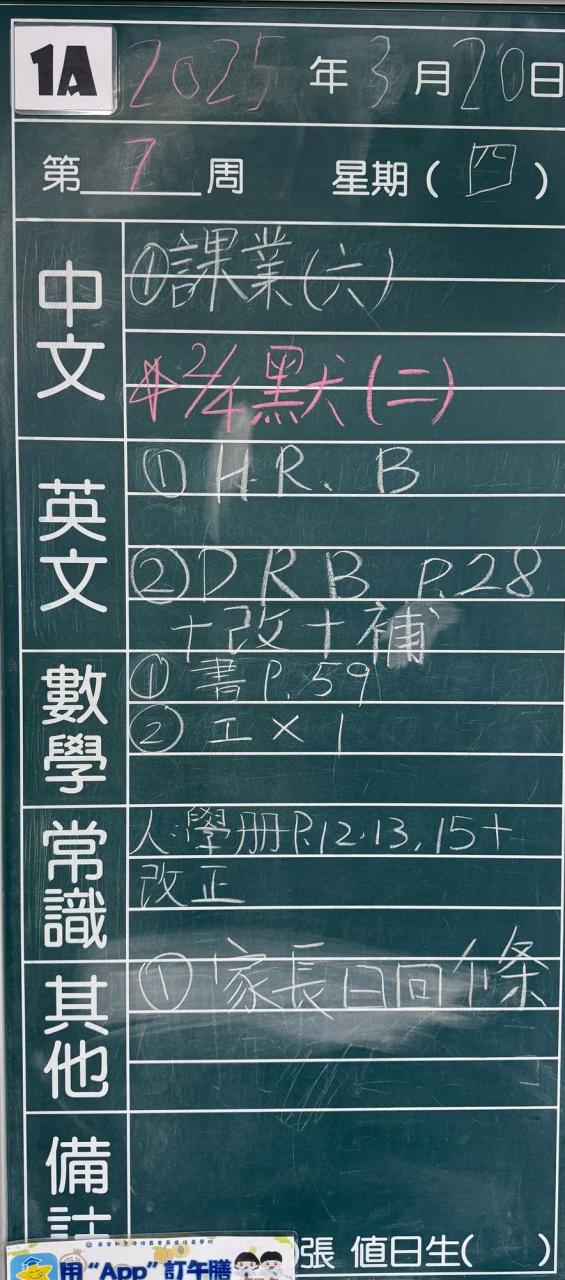 1A 2025 年 3 月 20 日
第 7 周 星期 ( 四 )
中文
①課業(六)
2/4 默(二)
英文
① H.R. B
② D R B P.28
+改+補
數學
① 書 P.59
② 工 × 1
常識
人.學册 P.12.13, 15+
改正
其他
① 家長日回條
備註
張 值日生( )
用 “App” 訂午膳